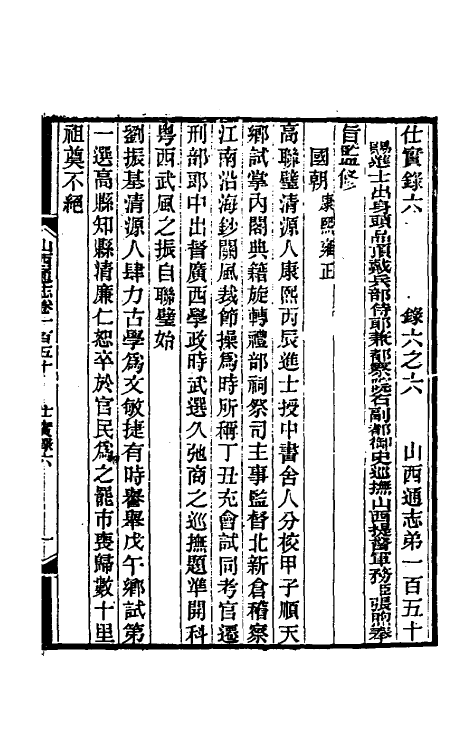 仕實錄六　　　錄六之六　　山西通志第一百五十
賜進士出身頭品頂戴兵部侍郎兼都察院右副都御史巡撫山西提督軍務臣張煦奉
旨監修
國朝 康熙 雍正
高聯璧清源人康熙丙辰進士授中書舍人分校甲子順天
鄉試掌內閣典籍旋轉禮部祠祭司主事監督北新倉稽察
江南沿海鈔關風裁節操爲時所稱丁丑充會試同考官遷
刑部郎中出督廣西學政時武選久弛商之巡撫題準開科
粵西武風之振自聯璧始
劉振基清源人肆力古學爲文敏捷有時譽舉戊午鄉試第
一選高縣知縣清廉仁恕卒於官民爲之罷市喪歸數十里
祖奠不絕
山西通志卷一百五十　仕實錄六　一